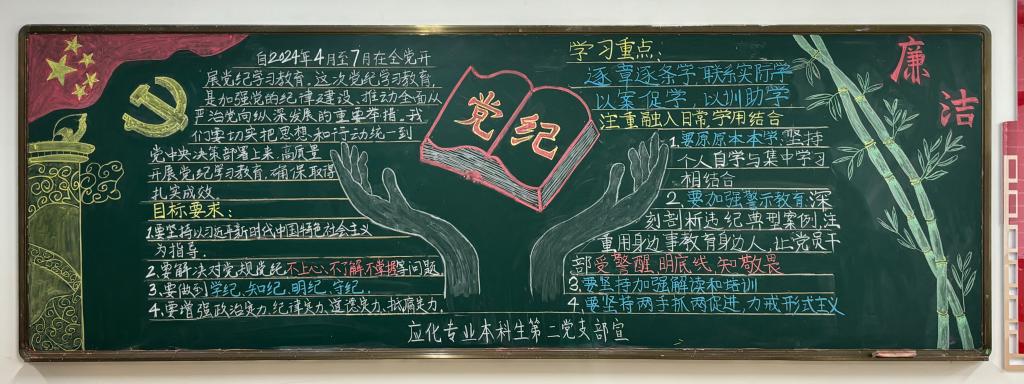 自2024年4月至7月在全党开
展党纪学习教育,这次党纪学习教育,
是加强党的纪律建设、推动全面从
严治党向纵深发展的重要举措。我
们要切实把思想和行动统一到
党中央决策部署上来,高质量
开展党纪学习教育,确保取得
扎实成效
目标要求:
1.要坚持以习近平新时代中国特色社会主义
为指导.
2.要解决对党规党纪不上心、不了解、不掌握等问题
3.要做到学纪、知纪、明纪、守纪.
4.要增强政治定力、纪律定力、道德定力、抵腐定力.
党纪
学习重点:
逐章逐条学 联系实际学
以案促学,以训助学
注重融入日常学用结合
1.要原原本本学,坚持
个人自学与集中学习
相结合
2.要加强警示教育,深
刻剖析违纪典型案例,注
重用身边事教育身边人,让党员干
部受警醒、明底线、知敬畏
3.要坚持加强解读和培训
4.要坚持两手抓两促进,力戒形式主义
廉洁
应化专业本科生第二党支部宣